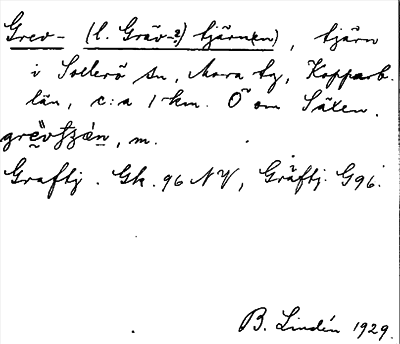 Grev- (l. Gräv-?) tjärn(en), tjärn
i Sollerö sn, Mora tg, Kopparb.
län, c:a 1 km. Ö om Säxen.
, m.
Graftj. Gk. 96 NV, Gräftj. G96.
B. Lindén 1929.